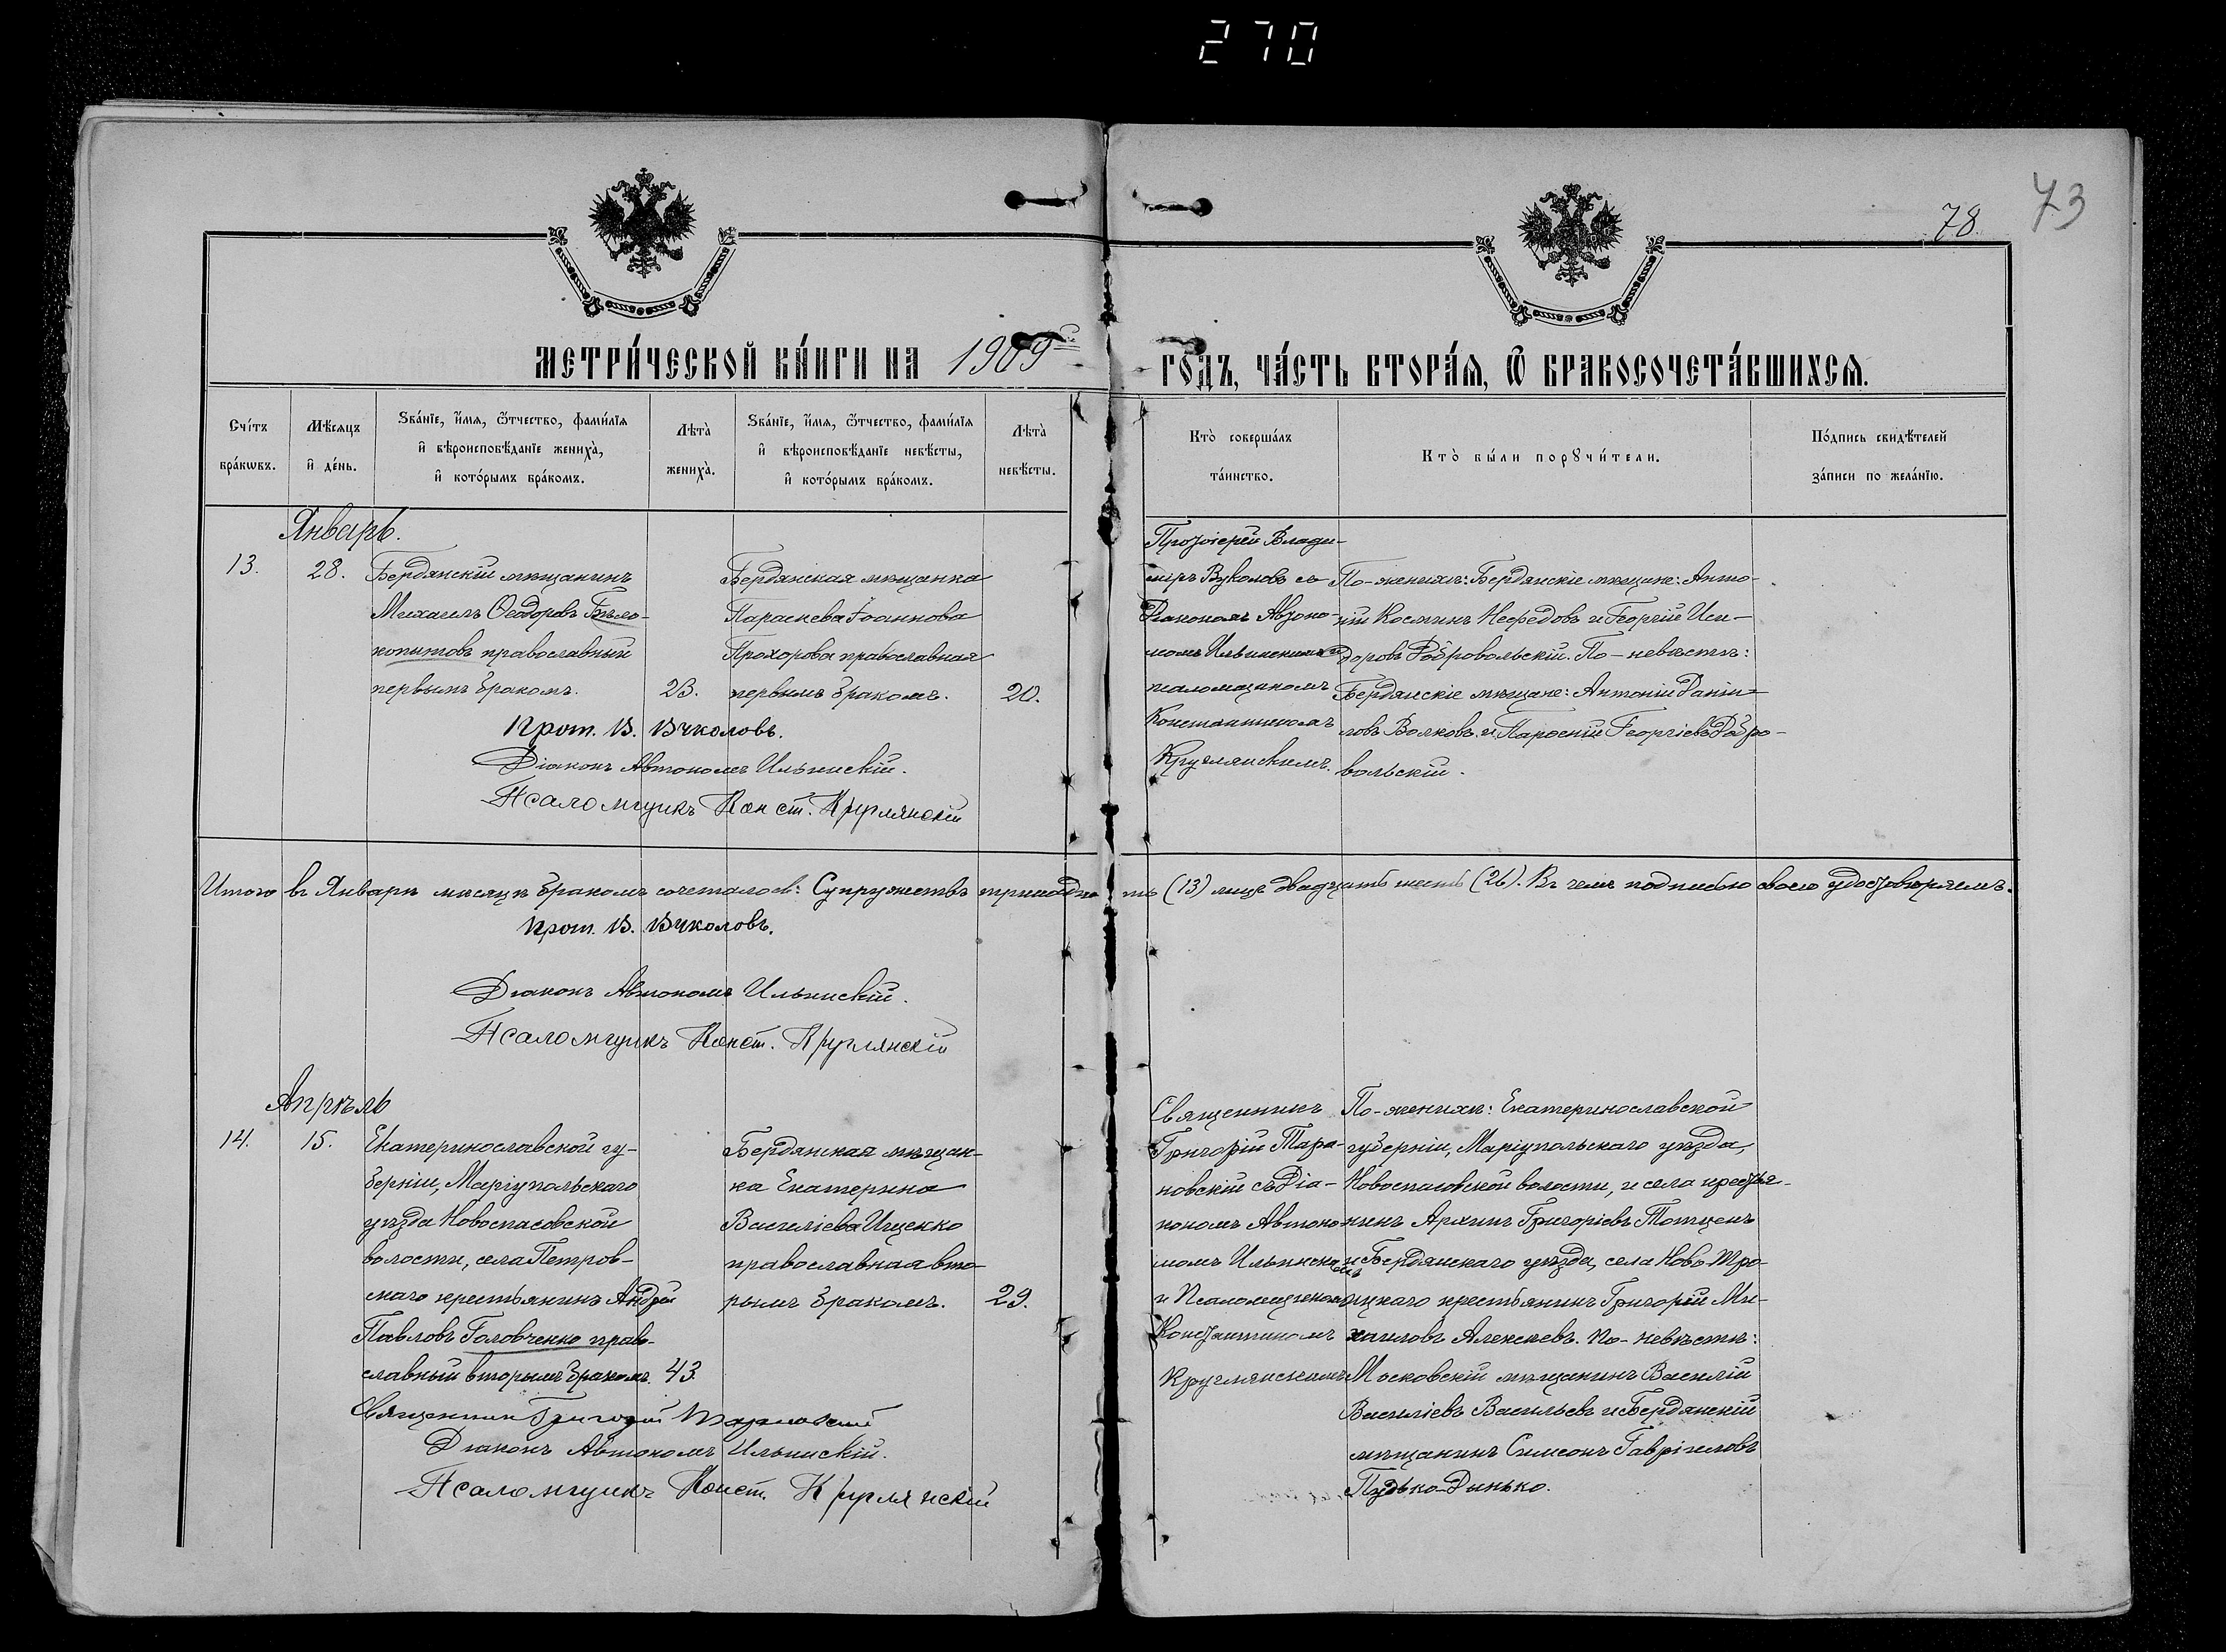 270
73
78.
МЕТРИ́ЧЕСКОЙ КНИ́ГИ НА 1909й ГОДЪ, ЧА́СТЬ ВТОРА́Я, Ѿ БРАКОСОЧЕТА́ВШИХСЯ.
Сче́тъ бра́кѡвъ.
Мѣ́сяцъ и҆ де́нь.
Ѕва́нїе, и҆́мя, ѻ҆́тчество, фами́лїя
и҆ вѣроисповѣ́данїе жениха̀,
и҆ кото́рымъ бра́комъ.
Лѣта̀ жениха̀.
Ѕва́нїе, и҆́мя, ѻ҆́тчество, фами́лїя
и҆ вѣроисповѣ́данїе невѣ́сты,
и҆ кото́рымъ бра́комъ.
Лѣта̀ невѣ́сты.
Кто̀ соверша́лъ та́инство.
Кто̀ бы́ли порꙋчи́тели.
По́дпись свидѣ́телей
за́писи по жела́нїю.
Январь.
13.
28.
Бердянскій мѣщанинъ
Михаилъ Ѳеодоровъ Бѣло-
копытовъ православный
первымъ бракомъ.
23.
Бердянская мѣщанка
Параскева Іоаннова
Прохорова православная
первымъ бракомъ.
20.
Протоіерей Влади-
міръ Вуколовъ съ
Діакономъ Автоно-
момъ Ильинскимъ и
псаломщикомъ
Константиномъ
Круглянскимъ.
По-женихѣ: Бердянскіе мѣщане: Анто-
ній Косминъ Нефедовъ и Георгій Иси-
доровъ Добровольскій. По-невѣстѣ:
Бердянскіе мѣщане: Антоній Даніи-
ловъ Волковъ и Георгіевъ Добро-
вольскій.
Прот. В. Вуколовъ.
Діаконъ Автономъ Ильинскій.
Псаломщикъ Конст. Круглянскій
Итого въ Январѣ мѣсяцѣ бракомъ сочеталось: Супружествъ тринадцать (13) лицъ двадцать шесть (26). Въ чемъ подписью своею удостовѣряемъ.
Прот. В. Вуколовъ.
Діаконъ Автономъ Ильинскій.
Псаломщикъ Конст. Круглянскій
Апрѣль
14.
15.
Екатеринославской гу-
берніи, Маріупольскаго
уѣзда Новоспасовской
волости, села Петров-
скаго крестьянинъ Андрей
Павловъ Головченко право-
славный вторымъ бракомъ.
43
Бердянская мѣщан-
ка Екатерина
Василіева Ищенко
православная вто-
рымъ бракомъ.
29.
Священникъ
Григорій Тара-
новскій съ Діа-
кономъ Автоно-
момъ Ильинскимъ
и Псаломщикомъ
Константиномъ
Круглянскимъ
По-женихѣ: Екатеринославской
губерніи, Маріупольскаго уѣзда,
Новоспасовской волости, и села кресть-
янинъ Архипъ Григоріевъ
и Бердянскаго уѣзда, села Ново-Тро-
ицкаго крестьянинъ Григорій Ми-
хаиловъ Алексѣевъ. По-невѣстѣ:
Московскій мѣщанинъ Василій
Василіевъ Васильевъ и Бердянскій
мѣщанинъ Симеонъ Гавріиловъ
Пудько-Дынько.
Священникъ Григорій Тарановскій
Діаконъ Автономъ Ильинскій.
Псаломщикъ Конст. Круглянскій